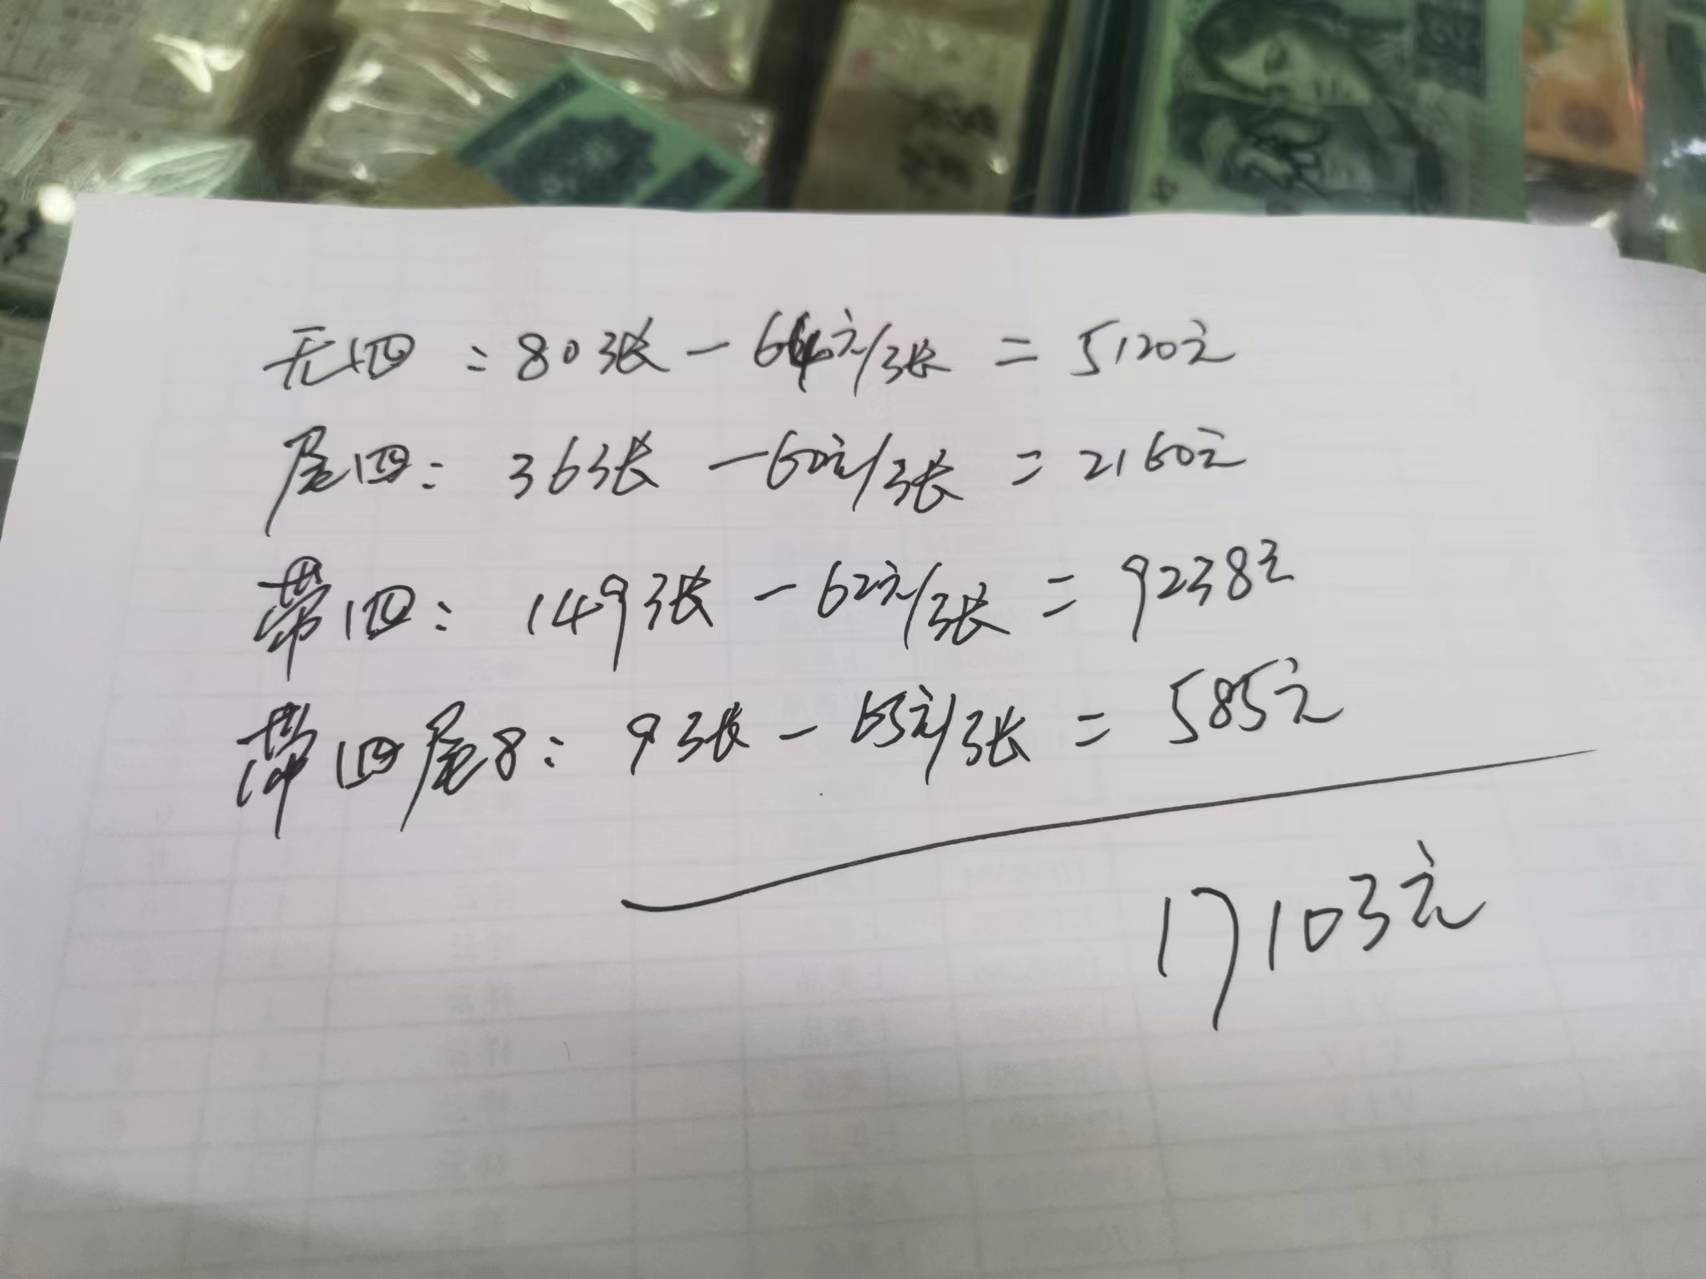 无四:80张-64元/张=5120元
尾四:36张-60元/张=2160元
带四:149张-62元/张=9238元
带四尾8:9张-65元/张=585元
17103元